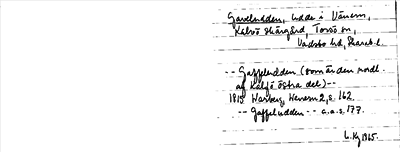 Gaveludden, udde i Vänern,
Kalvö skärgård, Torsö sn,
Vadsbo hd, Skarab. l.
-- Gaffeludden (som är den nordl.
av Kalfö östra del) --
1815 Warberg, Wenern 2, s. 162.
-- Gaffeludden -- a.a. s. 177.
1965.